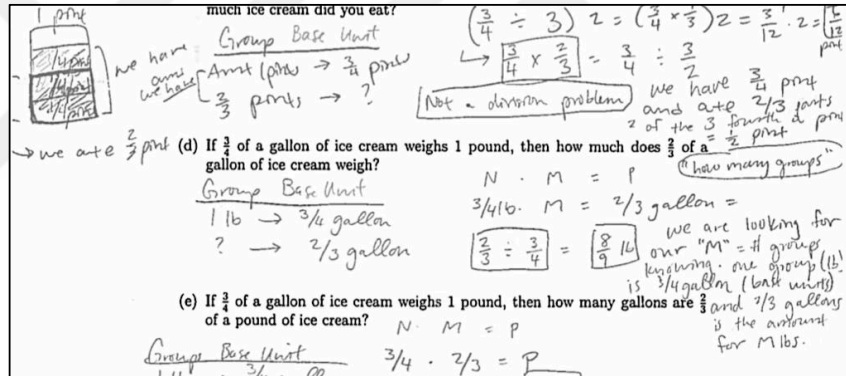 much ice cream did you eat?
1 pint
Group Base Unit
we have
Amt 1 pint → 3/4 pints
2/3 pints → ?
1/4 pint
(3/4 ÷ 3) 2 = (3/4 × 1/3) 2 = 3/12 · 2 = 6/12 pint
↳ 3/4 × 2/3 = 3/4 ÷ 3/2
Not a division problem
we have 3/4 pint
and ate 2/3 parts
2 of the 3 fourth pint
= 1/2 pint
→ we ate 2/3 pint
(d) If 3/4 of a gallon of ice cream weighs 1 pound, then how much does 2/3 of a
gallon of ice cream weigh?
"how many groups"
Group Base Unit
1 lb → 3/4 gallon
? → 2/3 gallon
N · M = P
3/4 lb · M = 2/3 gallon =
2/3 ÷ 3/4 = 8/9 lb
we are looking for
our "M" = # groups
knowing one group (lb)
is 3/4 gallon (base units)
and 2/3 gallons
is the amount
for M lbs.
(e) If 3/4 of a gallon of ice cream weighs 1 pound, then how many gallons are 2/3
of a pound of ice cream?
N · M = P
Groups Base Unit
3/4 · 2/3 = P